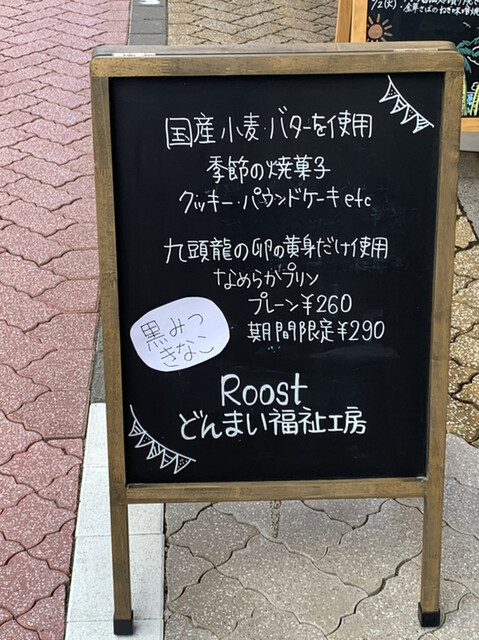 国産小麦・バターを使用
季節の焼菓子
クッキー・パウンドケーキetc
九頭龍の卵の黄身だけ使用
なめらかプリン
プレーン¥260
期間限定¥290
黒みつ
きなこ
Roost
どんまい福祉工房